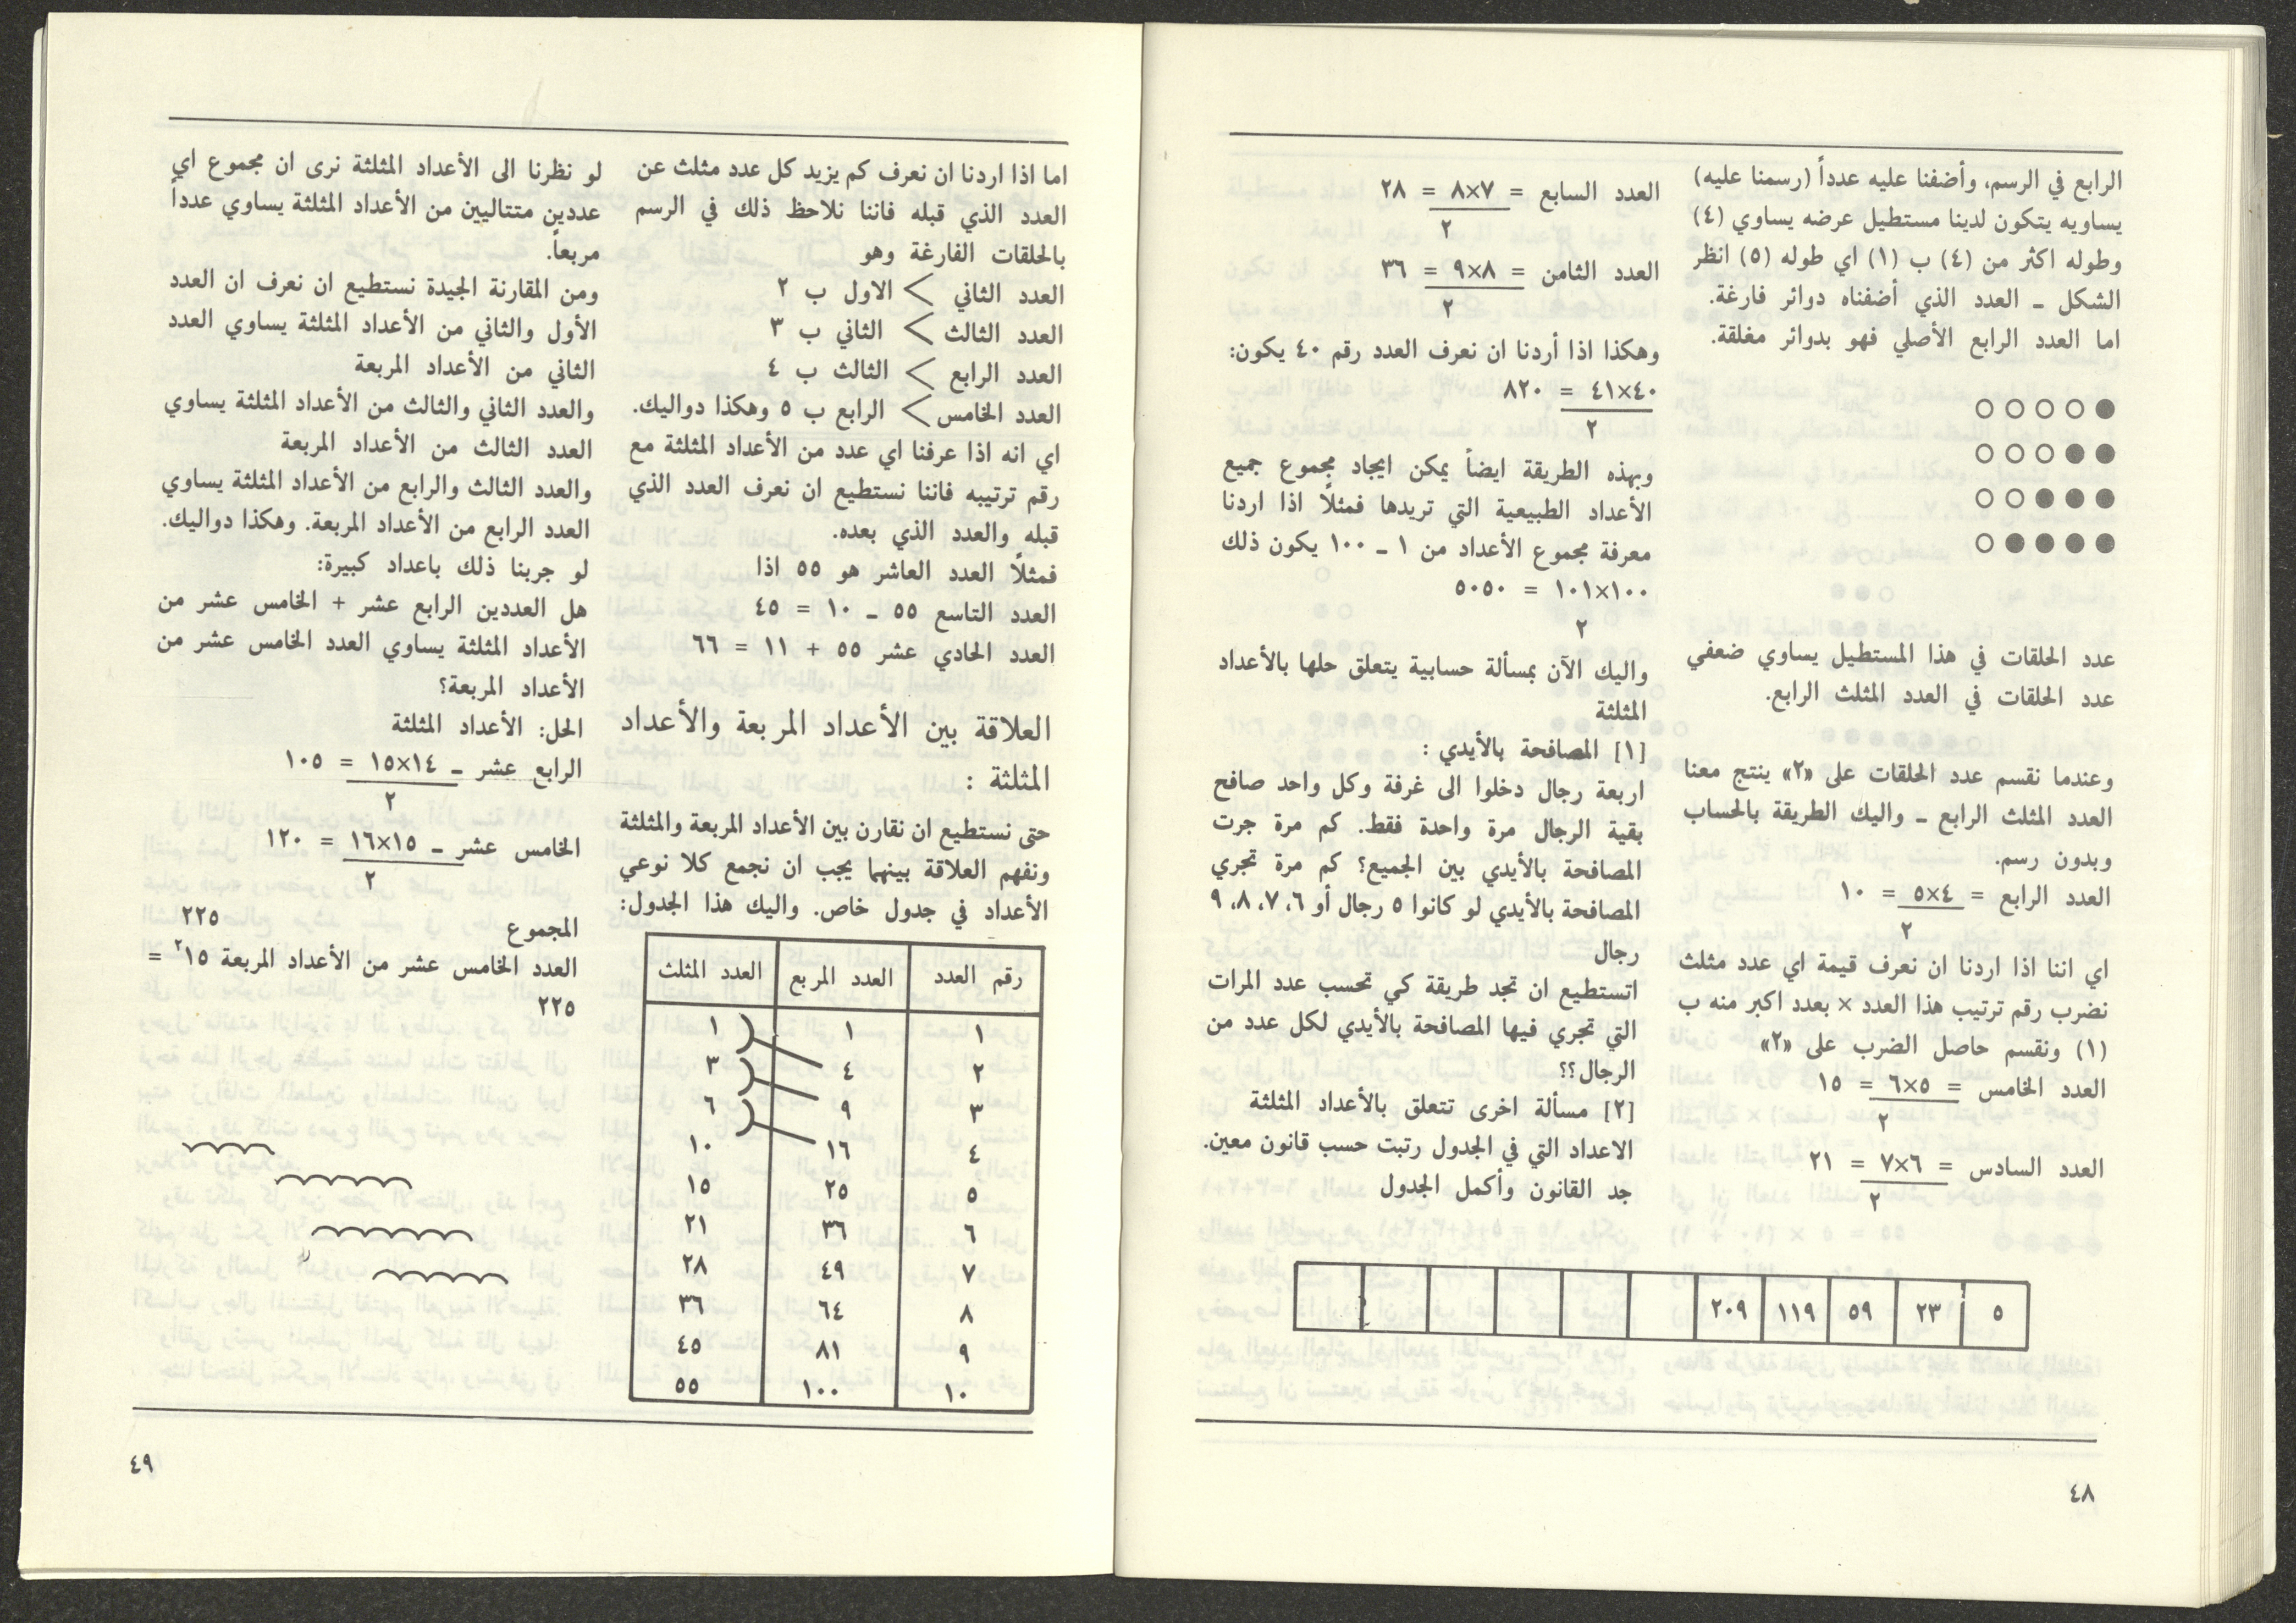 الرابع في الرسم، وأضفنا عليه عدداً (رسمنا عليه)
يساويه يتكون لدينا مستطيل عرضه يساوي (٤)
وطوله اكثر من (٤) ب (١) اي طوله (٥) انظر
الشكل ـ العدد الذي أضفناه دوائر فارغة.
اما العدد الرابع الأصلي فهو بدوائر مغلقة.
عدد الحلقات في هذا المستطيل يساوي ضعفي
عدد الحلقات في العدد المثلث الرابع.
وعندما نقسم عدد الحلقات على «٢» ينتج معنا
العدد المثلث الرابع ـ واليك الطريقة بالحساب
وبدون رسم.
العدد الرابع = ٤×٥ = ١٠
٢
اي اننا اذا اردنا ان نعرف قيمة اي عدد مثلث
نضرب رقم ترتيب هذا العدد × بعدد اكبر منه ب
(١) ونقسم حاصل الضرب على «٢»
العدد الخامس = ٥×٦ = ١٥
٢
العدد السادس = ٦×٧ = ٢١
٢
العدد السابع = ٧×٨ = ٢٨
٢
العدد الثامن = ٨×٩ = ٣٦
٢
وهكذا اذا أردنا ان نعرف العدد رقم ٤٠ يكون:
٤٠×٤١ = ٨٢٠
٢
وبهذه الطريقة ايضاً يمكن ايجاد مجموع جميع
الأعداد الطبيعية التي تريدها فمثلاً اذا اردنا
معرفة مجموع الأعداد من ١ ـ ١٠٠ يكون ذلك
١٠٠×١٠١ = ٥٠٥٠
٢
واليك الآن بمسألة حسابية يتعلق حلها بالأعداد
المثلثة
[١] المصافحة بالأيدي :
اربعة رجال دخلوا الى غرفة وكل واحد صافح
بقية الرجال مرة واحدة فقط. كم مرة جرت
المصافحة بالأيدي بين الجميع؟ كم مرة تجري
المصافحة بالأيدي لو كانوا ٥ رجال أو ٦، ٧، ٨، ٩
رجال
اتستطيع ان تجد طريقة كي تحسب عدد المرات
التي تجري فيها المصافحة بالأيدي لكل عدد من
الرجال؟؟
[٢] مسألة اخرى تتعلق بالأعداد المثلثة
الاعداد التي في الجدول رتبت حسب قانون معين.
جد القانون وأكمل الجدول
٥ ٢٣ ٥٩ ١١٩ ٢٠٩
٤٨
اما اذا اردنا ان نعرف كم يزيد كل عدد مثلث عن
العدد الذي قبله فاننا نلاحظ ذلك في الرسم
بالحلقات الفارغة وهو
العدد الثاني > الاول ب ٢
العدد الثالث > الثاني ب ٣
العدد الرابع > الثالث ب ٤
العدد الخامس > الرابع ب ٥ وهكذا دواليك.
اي انه اذا عرفنا اي عدد من الأعداد المثلثة مع
رقم ترتيبه فاننا نستطيع ان نعرف العدد الذي
قبله والعدد الذي بعده.
فمثلاً العدد العاشر هو ٥٥ اذا
العدد التاسع ٥٥ ـ ١٠ = ٤٥
العدد الحادي عشر ٥٥ + ١١ = ٦٦
العلاقة بين الأعداد المربعة والأعداد
المثلثة :
حتى نستطيع ان نقارن بين الأعداد المربعة والمثلثة
ونفهم العلاقة بينهما يجب ان نجمع كلا نوعي
الأعداد في جدول خاص. واليك هذا الجدول:
رقم العدد العدد المربع العدد المثلث
١ ١ ١
٢ ٤ ٣
٣ ٩ ٦
٤ ١٦ ١٠
٥ ٢٥ ١٥
٦ ٣٦ ٢١
٧ ٤٩ ٢٨
٨ ٦٤ ٣٦
٩ ٨١ ٤٥
١٠ ١٠٠ ٥٥
لو نظرنا الى الأعداد المثلثة نرى ان مجموع اي
عددين متتاليين من الأعداد المثلثة يساوي عدداً
مربعاً.
ومن المقارنة الجيدة نستطيع ان نعرف ان العدد
الأول والثاني من الأعداد المثلثة يساوي العدد
الثاني من الأعداد المربعة
والعدد الثاني والثالث من الأعداد المثلثة يساوي
العدد الثالث من الأعداد المربعة
والعدد الثالث والرابع من الأعداد المثلثة يساوي
العدد الرابع من الأعداد المربعة. وهكذا دواليك.
لو جربنا ذلك باعداد كبيرة:
هل العددين الرابع عشر + الخامس عشر من
الأعداد المثلثة يساوي العدد الخامس عشر من
الأعداد المربعة؟
الحل: الأعداد المثلثة
الرابع عشر ـ ١٤×١٥ = ١٠٥
٢
الخامس عشر ـ ١٥×١٦ = ١٢٠
٢
المجموع ٢٢٥
العدد الخامس عشر من الأعداد المربعة ١٥² =
٢٢٥
٤٩